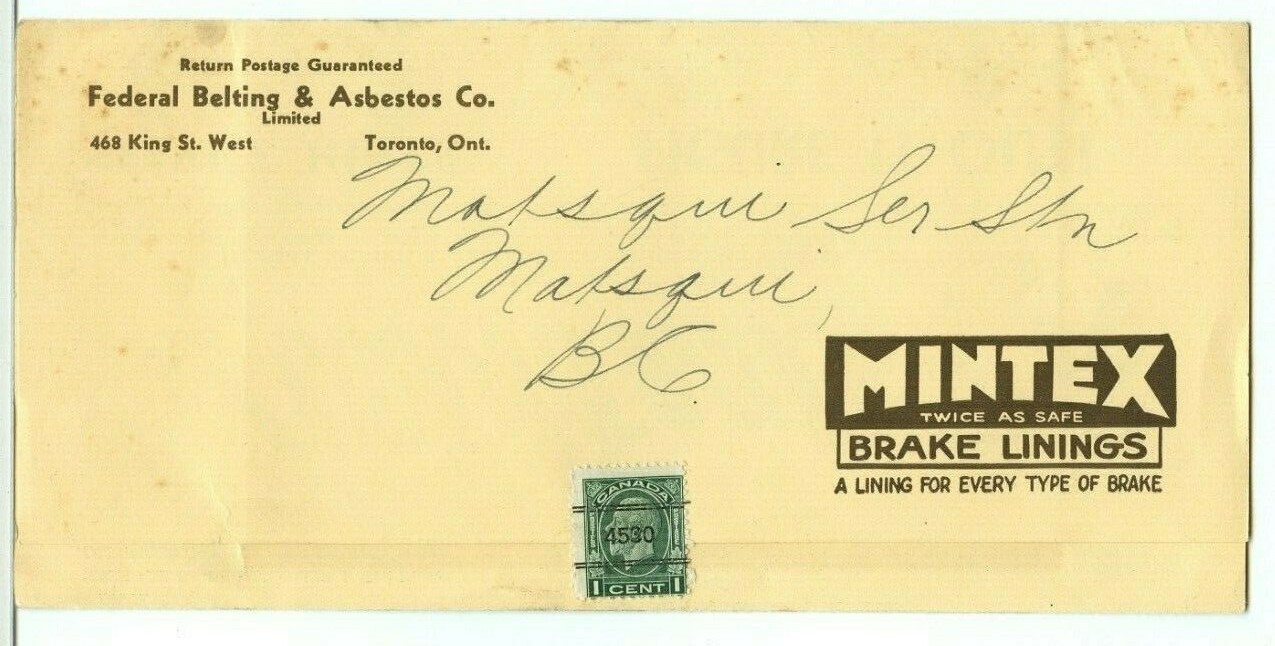 Return Postage Guaranteed
Federal Belting & Asbestos Co.
Limited
468 King St. West Toronto, Ont.
Matsqui Ser Stn
Matsqui,
BC
MINTEX
TWICE AS SAFE
BRAKE LININGS
A LINING FOR EVERY TYPE OF BRAKE
CANADA
4530
1 CENT 1